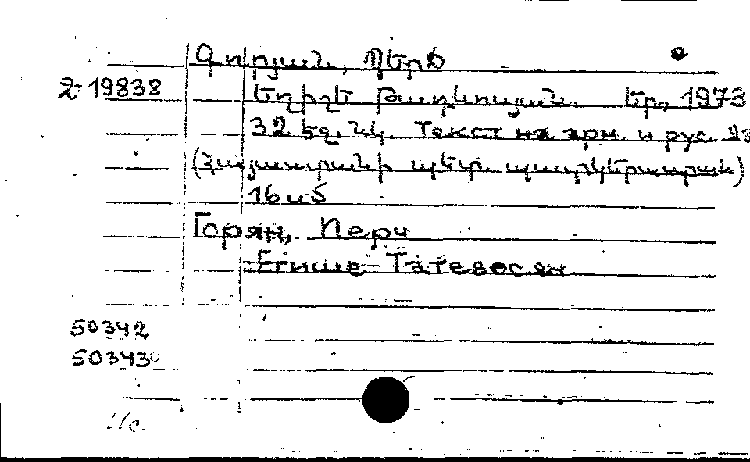 Գորյան, Պերճ
2-19838 Եղիշե Թադևոսյան. Եր., 1973
32 էջ. նկ. Текст на арм. и рус. яз
(Հայաստանի պետ. պատկերասրահ)
16 սմ
Горян, Перч
Егише Татевосян
50342
50343